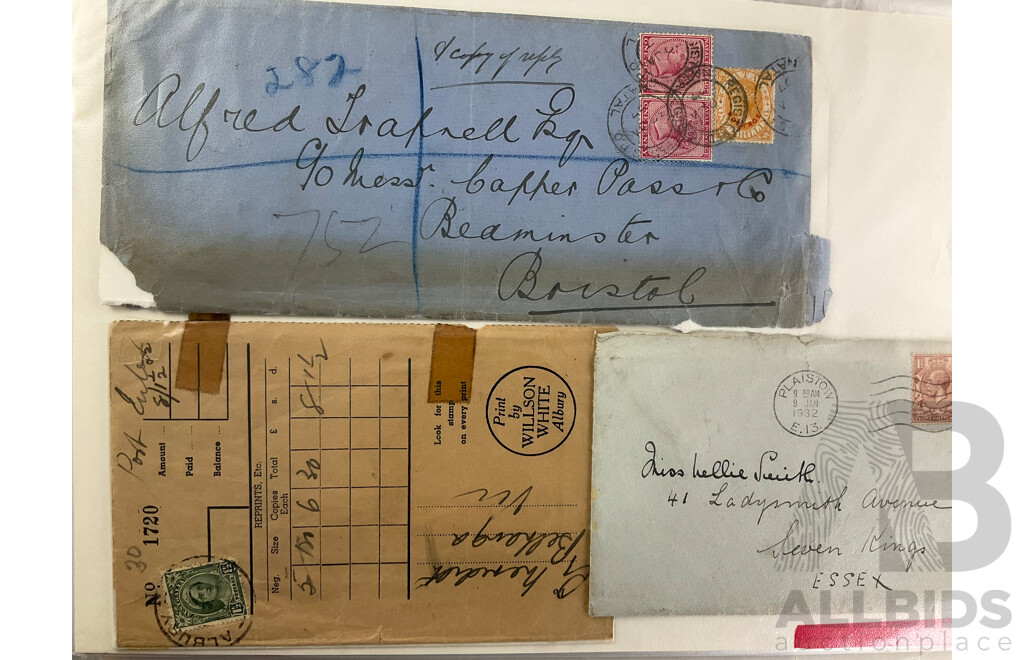 282
& copy of reply
Alfred Trapnell Esq.
c/o Messrs. Capper Pass & Co
Bedminster
Bristol
752
NATAL
Post
Amount
Paid
Balance
30
No 1720
REPRINTS, Etc.
Neg. Size Copies Each Total £ s. d.
6 30
Look for this
stamp
on every print
Print
by
WILLSON
WHITE
Albury
Bethanga
Vic
ALBURY
PLAISTOW
9 30 AM
9 JAN
1932
E.13.
Miss Nellie Smith.
41 Ladysmith Avenue
Seven Kings
ESSEX
B
ALLBIDS
auctionplace